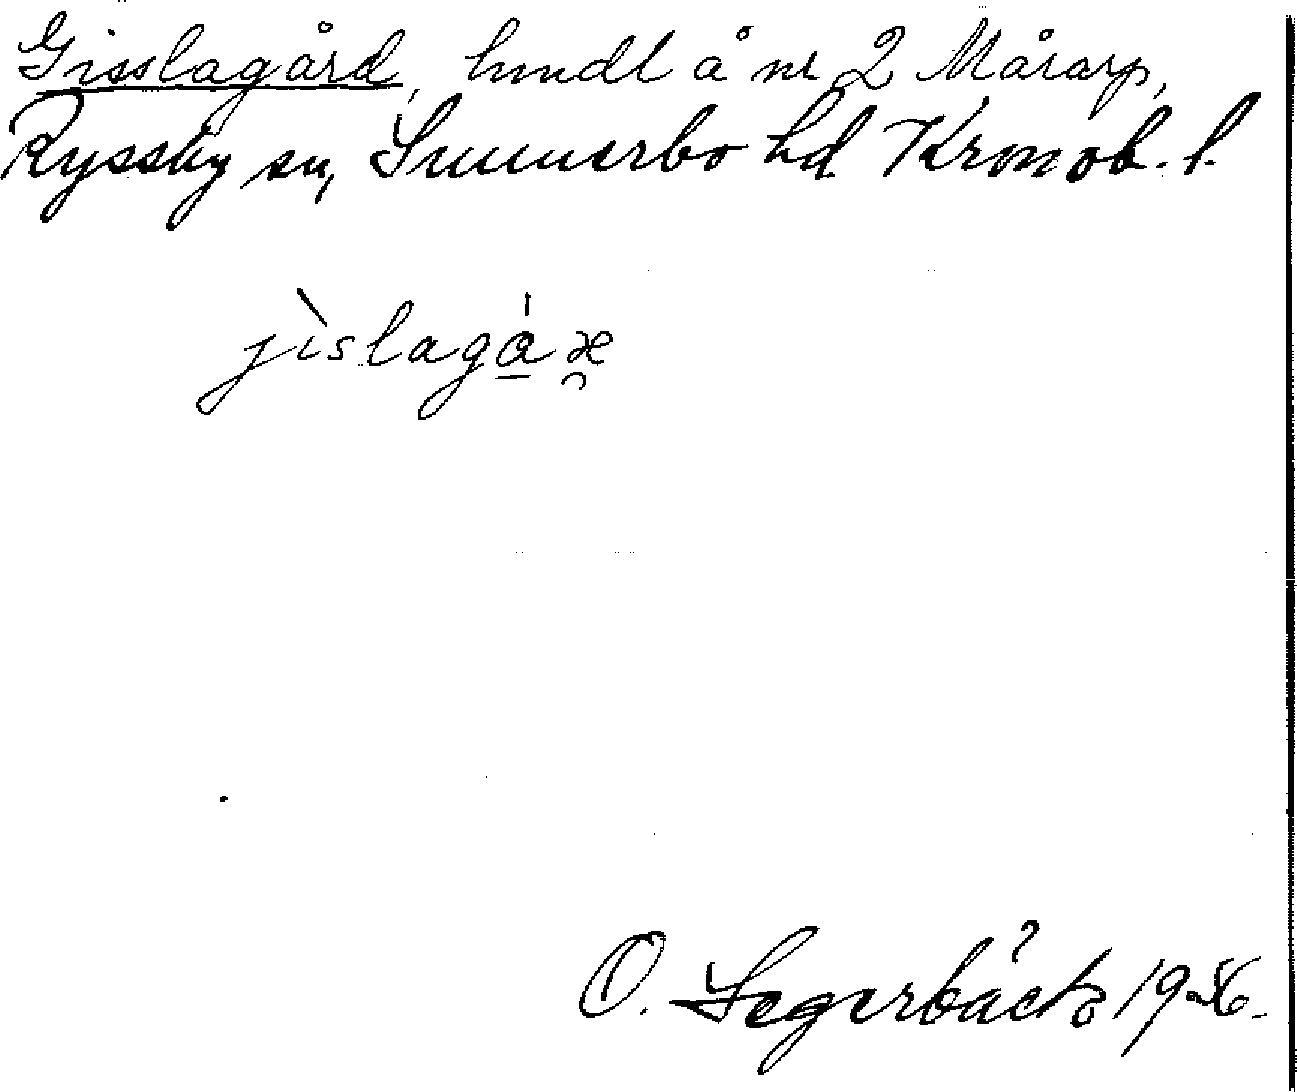 Gisslagård, hmdl å nr 2 Mårarp,
Ryssby sn, Sunnerbo hd Kronob. l.
jìslagá̱æ̯
O. Segerbäck 1956.